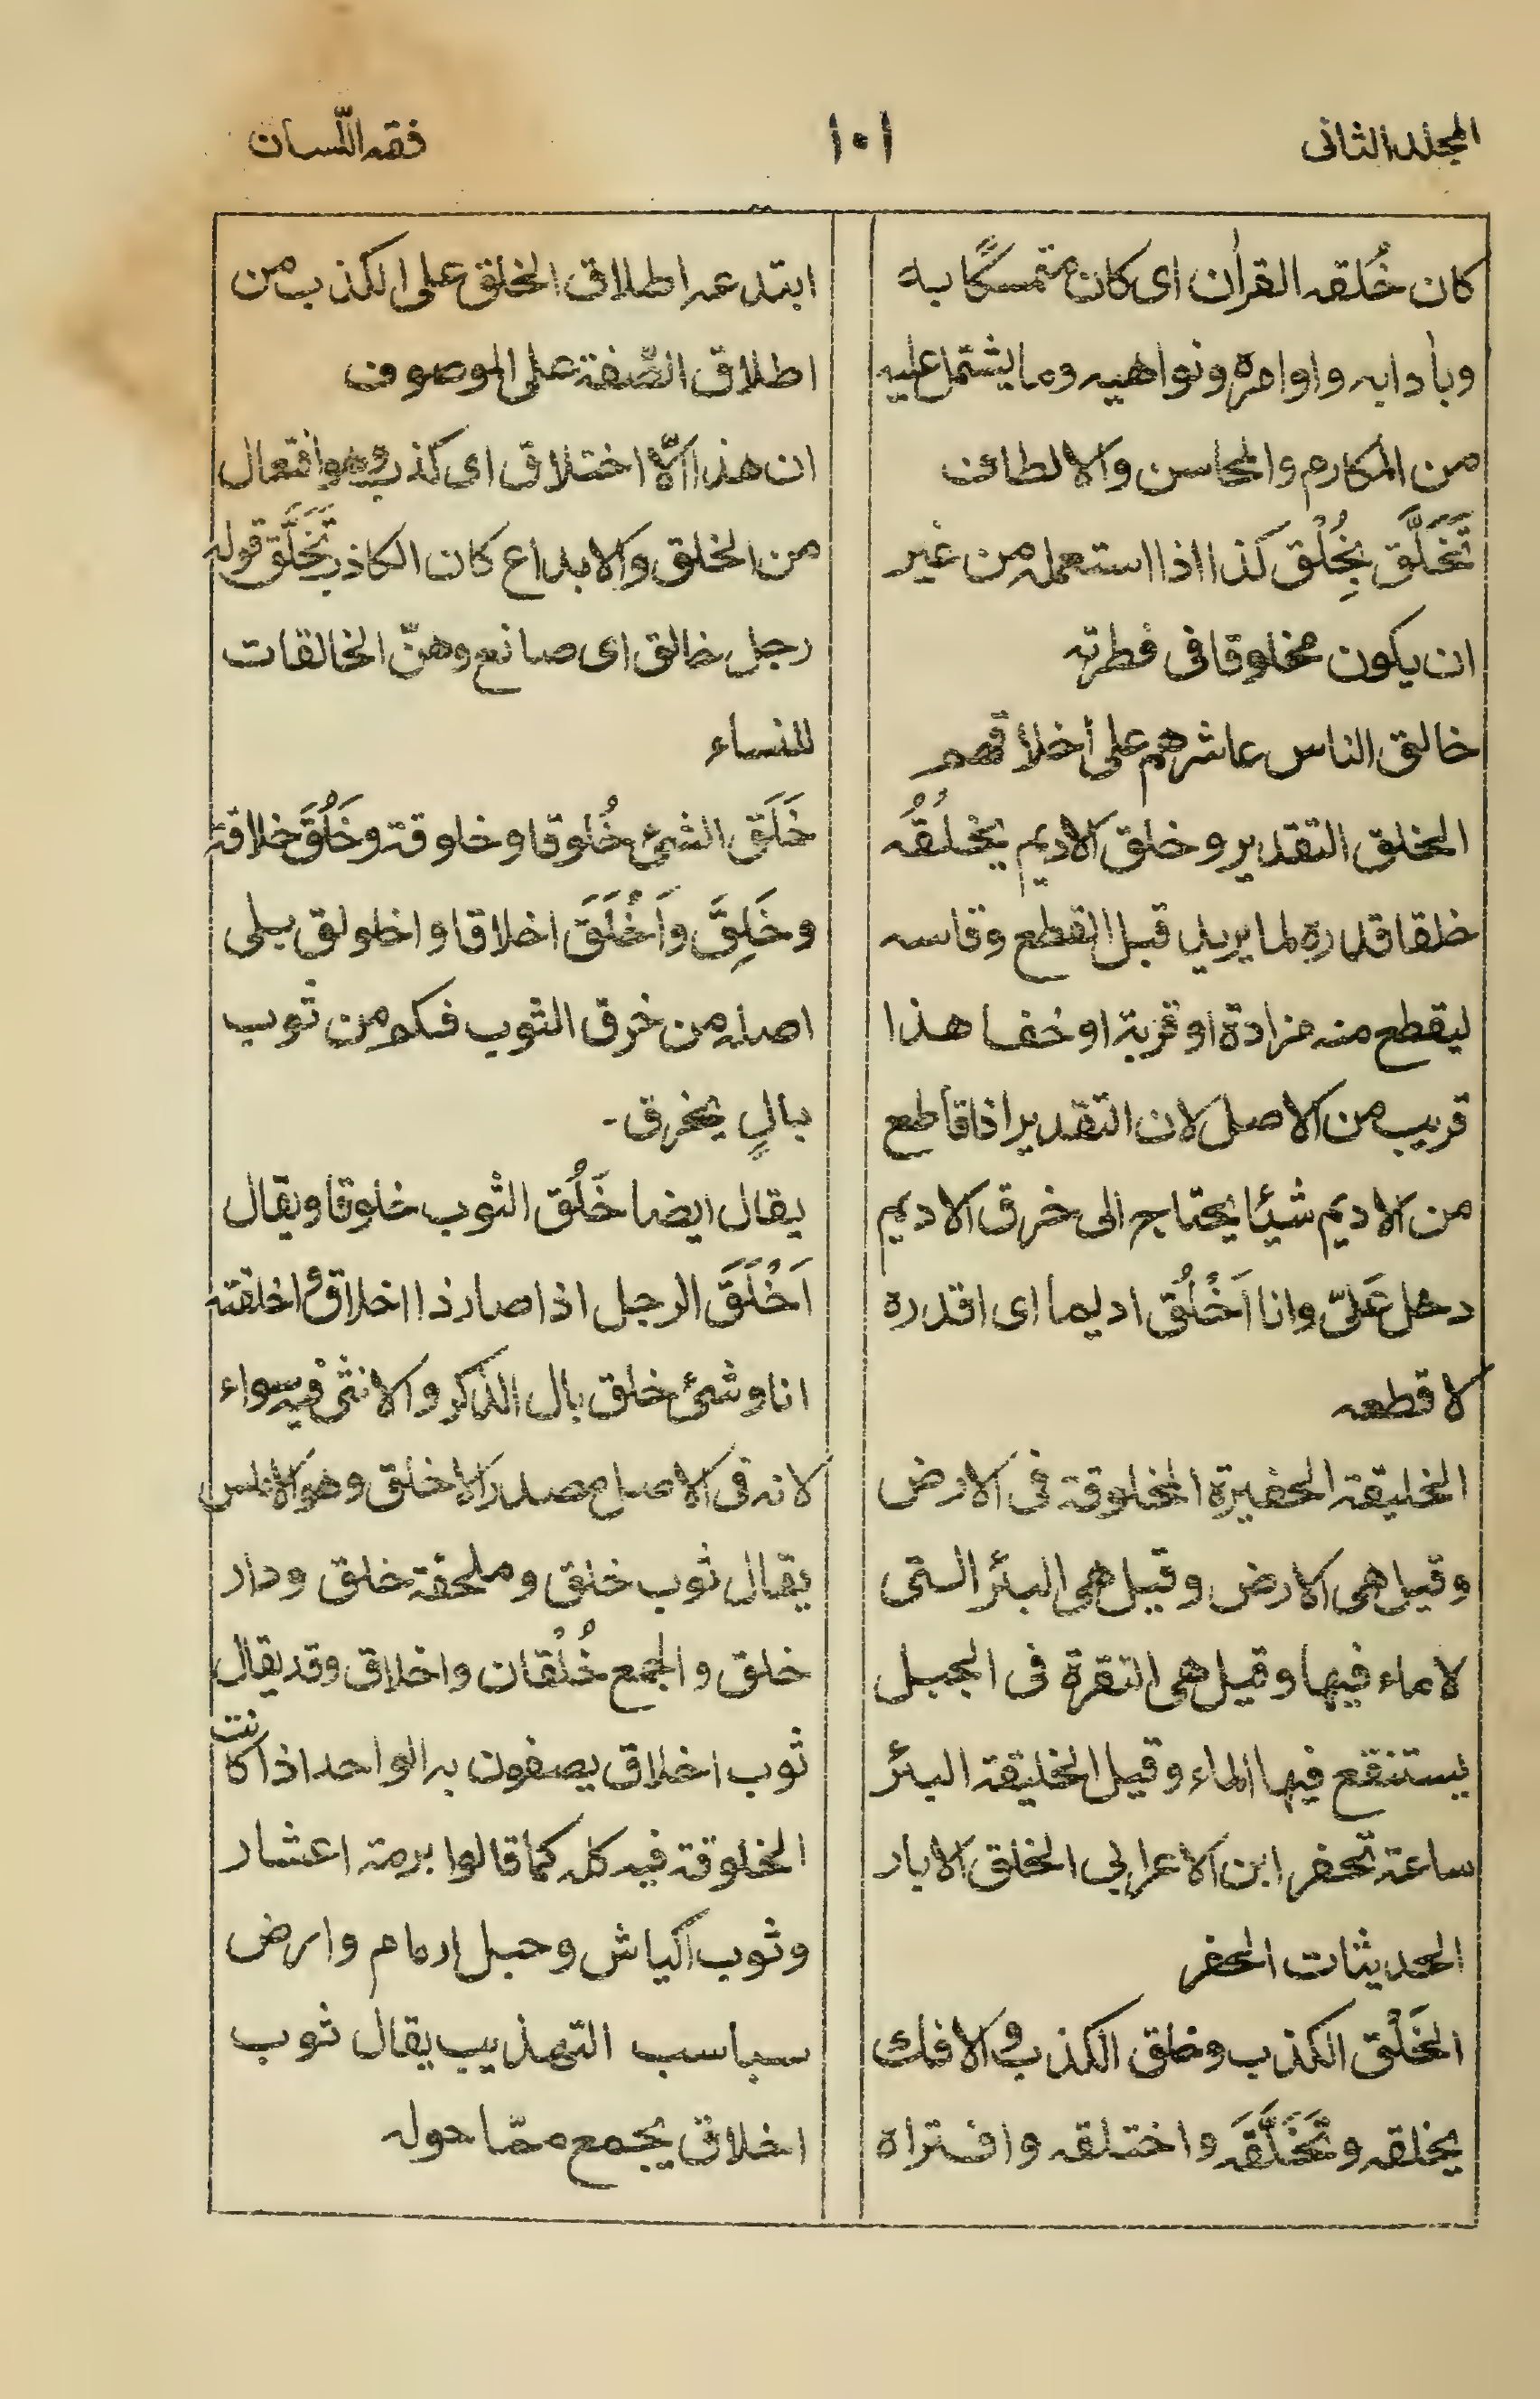 المجلد الثانى
١٠١
فقه اللّسان
كان خُلقه القرأن اى كان متمسكًا به
وبأدابه واوامره ونواهيه وما يشتمل عليه
من المكارم والمحاسن والالطاف
تَخَلَّق بخُلْق كذا اذا استعمله من غير
ان يكون مخلوقا فى فطرته
خالق الناس عاشرهم على اخلاقهم
الخلق التقدير وخلق الاديم يخلُقُه
خلقا قدره لما يريد قبل القطع وقاسه
ليقطع منه مزادة او قربة او خفا هذا
قريب من الاصل لان التقدير اذا قاطع
من الاديم شيئا يحتاج الى خرق الاديم
دخل عَلىّ وانا اَخْلُق اديما اى اقدره
لا قطعه
الخليقة الحفيرة المخلوقة فى الارض
وقيل هى الارض وقيل هى البئر التى
لا ماء فيها وقيل هى النقرة فى الجبل
يستنقع فيها الماء وقيل الخليقة البئر
ساعة تحفر ابن الاعرابى الخلق الابار
الحديثات الحفر
الخَلْق الكذب وخلق الكذب والافك
يخلقه وتَخَلَّقَه واختلقه وافتراه
ابتدعه اطلاق الخلق على الكذب من
اطلاق الصّفة على الموصوف
ان هذا الّا اختلاق اى كذب وهو افتعال
من الخلق والابداع كان الكاذب تَخَلَّق قوله
رجل خالق اى صانع وهنّ الخالقات
للنساء
خَلَق الشئ خُلوقا وخلوقة وخَلُقَ خلاقة
وخَلِقَ واَخْلَقَ اخلاقا واخلولق بلى
اصله من خرق الثوب فكم من ثوب
بالٍ يخرق -
يقال ايضا خَلُق الثوب خلوقا ويقال
اَخْلَقَ الرجل اذا صار ذا اخلاق واخلقته
انا وشئ خلق بال الذكر والانثى فيه سواء
لانه فى الاصل مصدر الاخلق وهو الاملس
يقال ثوب خلق وملحفة خلق ودار
خلق والجمع خُلْقان واخلاق وقد يقال
ثوب اخلاق يصفون به الواحد اذا كانت
الخلوقة فيه كله كما قالوا برمة اعشار
وثوب اكياش وحبل ارمام وارض
سباسب التهذيب يقال ثوب
اخلاق يجمع ممّا حوله